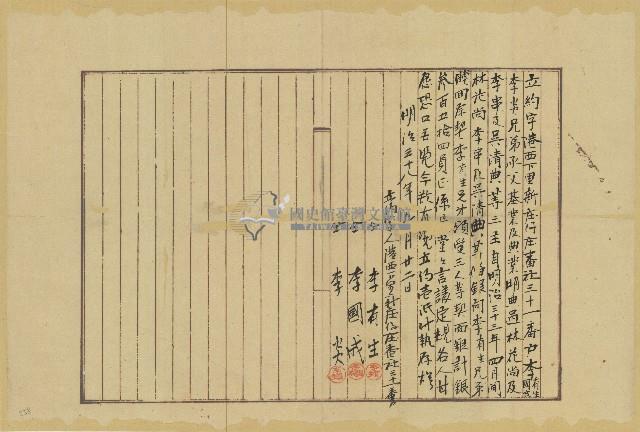 立約字港西下里新庄仔庄番社三十一番戶李有生國成
李炎兄弟承父基業及典業明典過林花尚及
李車及吳清典等三主自明治三十三年四月間
林花尚李車及吳清典等備銀向李有生兄弟
贖回原契李有生兄弟領受三人等契面銀計銀
參百五拾四員正係三堂言議定規各人甘
愿恐口無憑今欲有憑立約壱紙付執存炤
明治三十八年 月廿二日
立約人港西下里新庄仔庄番社三十一番
李有生
李國成
李炎
國史館臺灣文獻館
TAIWAN HISTORICA